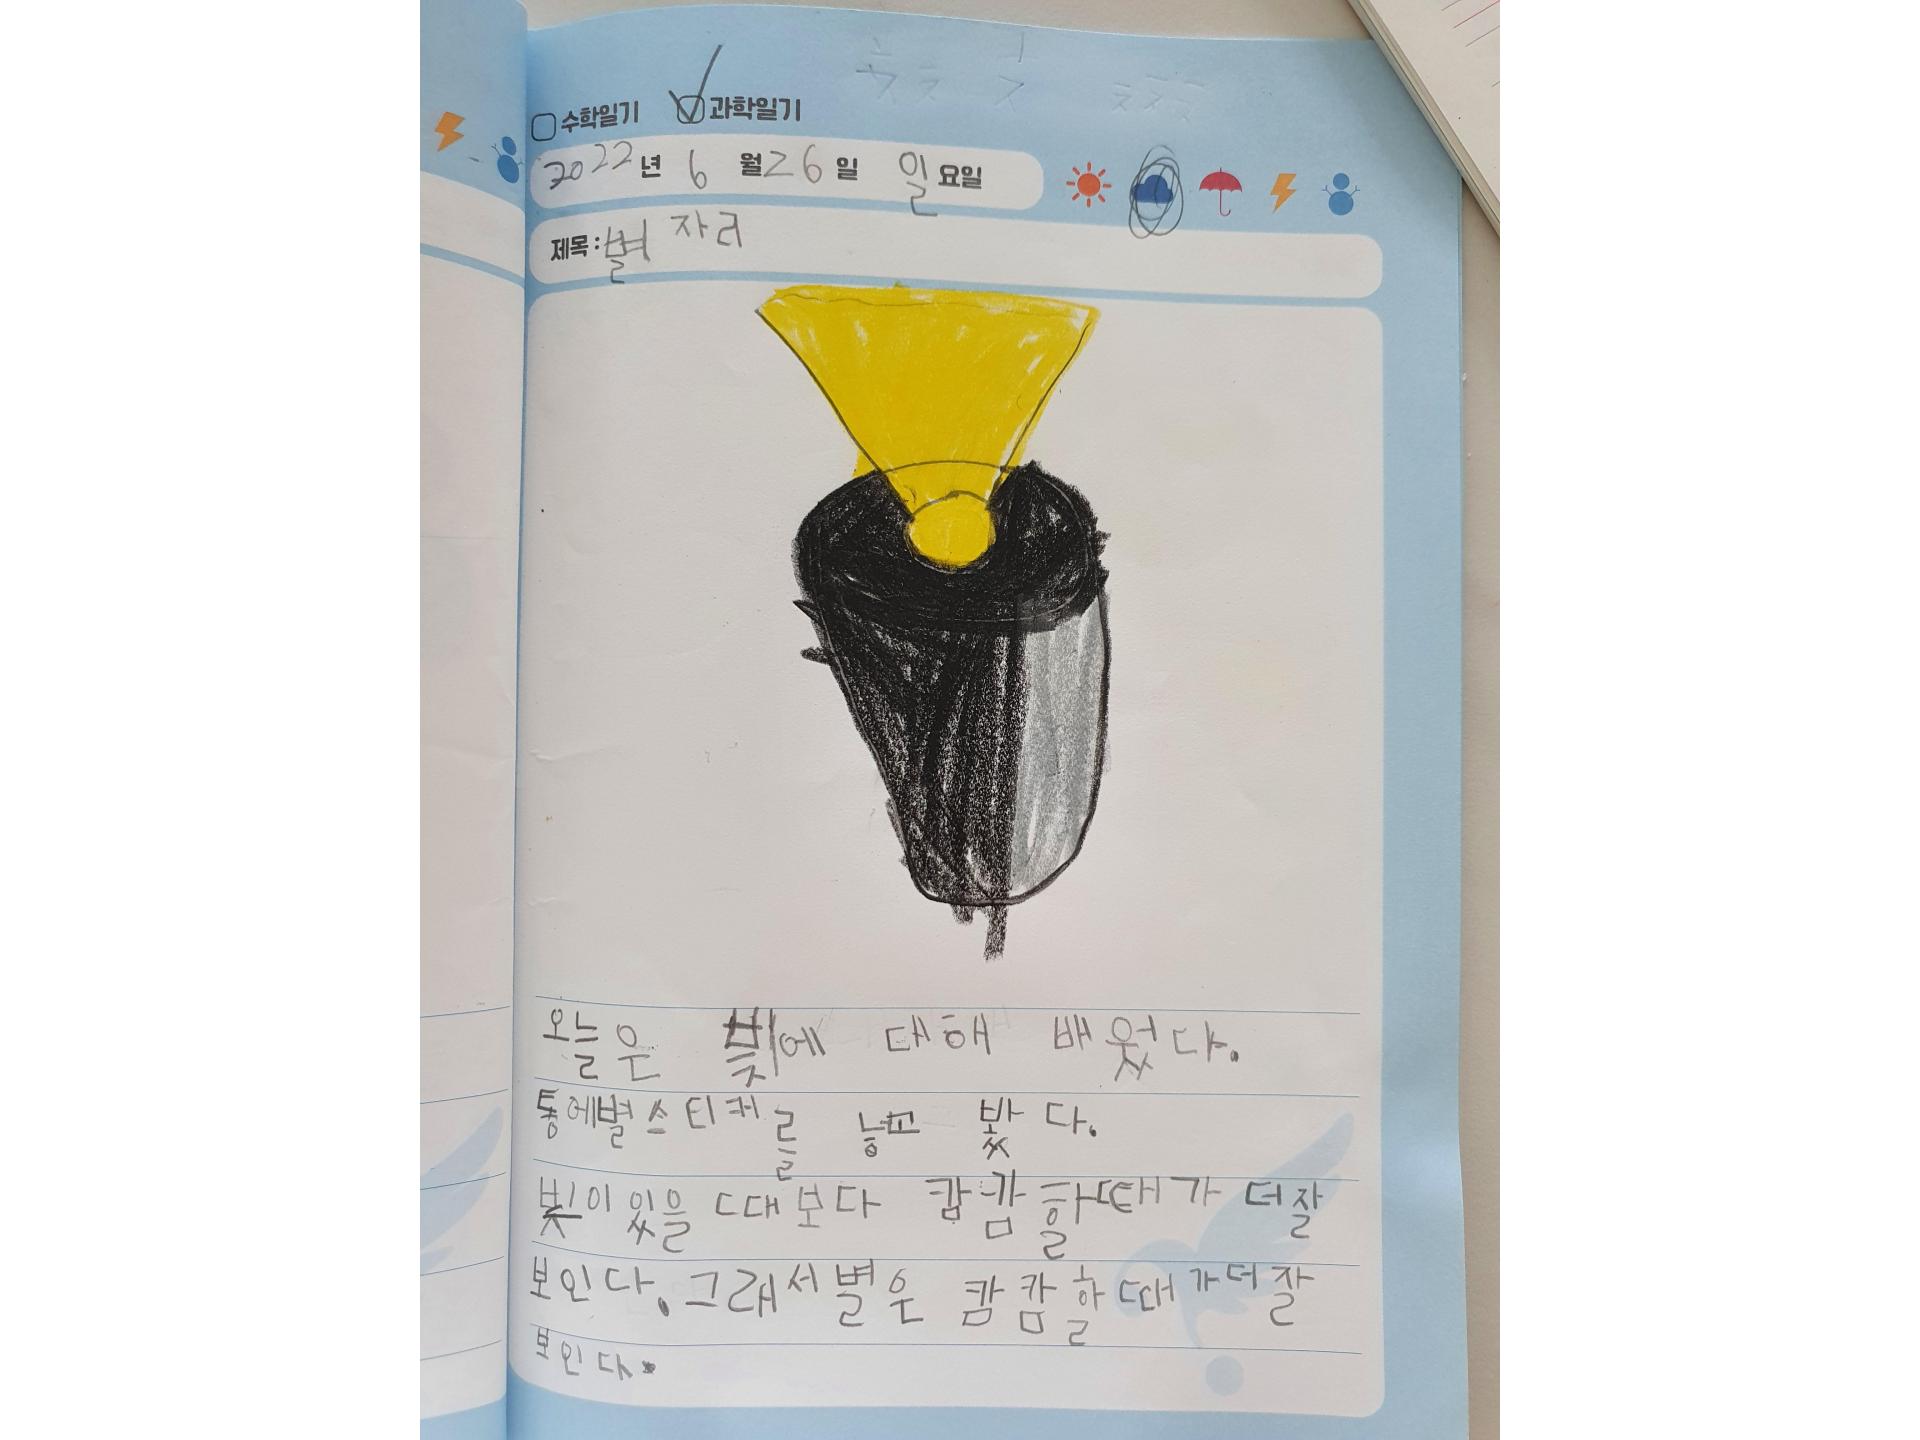 수학일기 과학일기
2022년 6월 26일 일요일
제목: 별자리
오늘은 빛에 대해 배웠다.
통에별스티커를 넣고 봤다.
빛이있을 때보다 캄캄할때가 더잘
보인다. 그래서별은 캄캄할때가더잘
보인다.